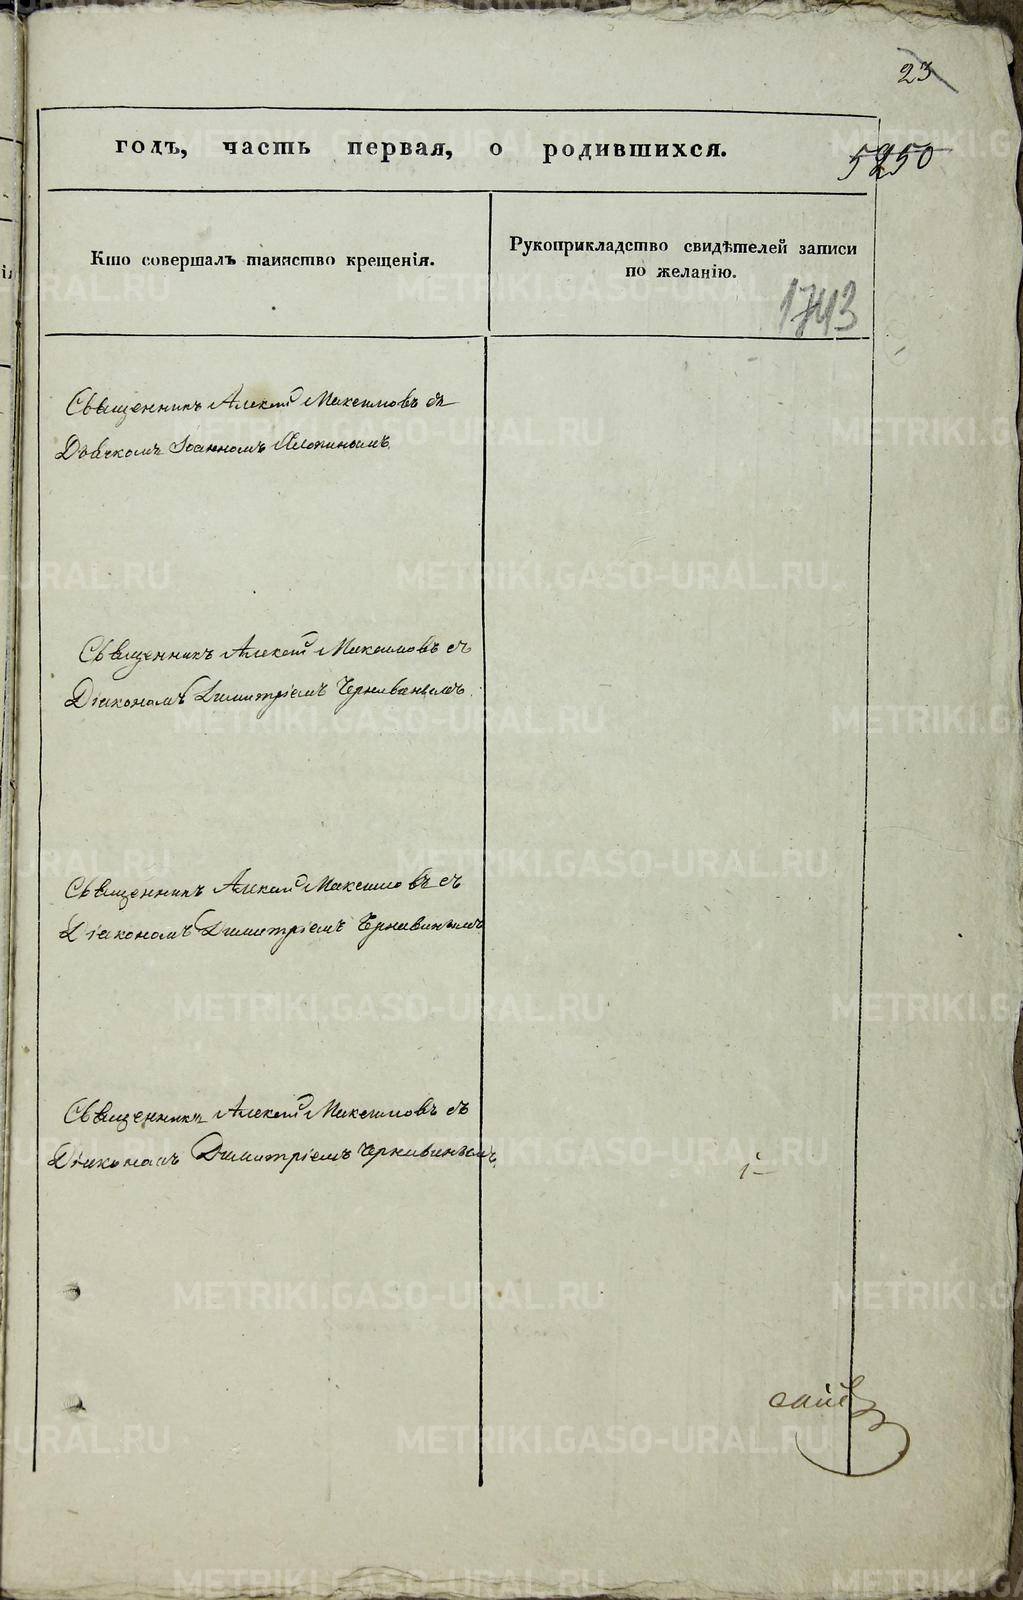 23
годъ, часть первая, о родившихся.
5250
Кто совершалъ таинство крещенія.
Рукоприкладство свидѣтелей записи
по желанію.
1743
Священникъ Алексій Максимовъ съ
Дьячкомъ Іоанномъ
Священникъ Алексій Максимовъ съ
Діакономъ Димитріемъ Чернавинымъ.
Священникъ Алексій Максимовъ съ
Діакономъ Димитріемъ Чернавинымъ
Священникъ Алексій Максимовъ съ
Діакономъ Димитріемъ Чернавинымъ.
METRIKI.GASO-URAL.RU